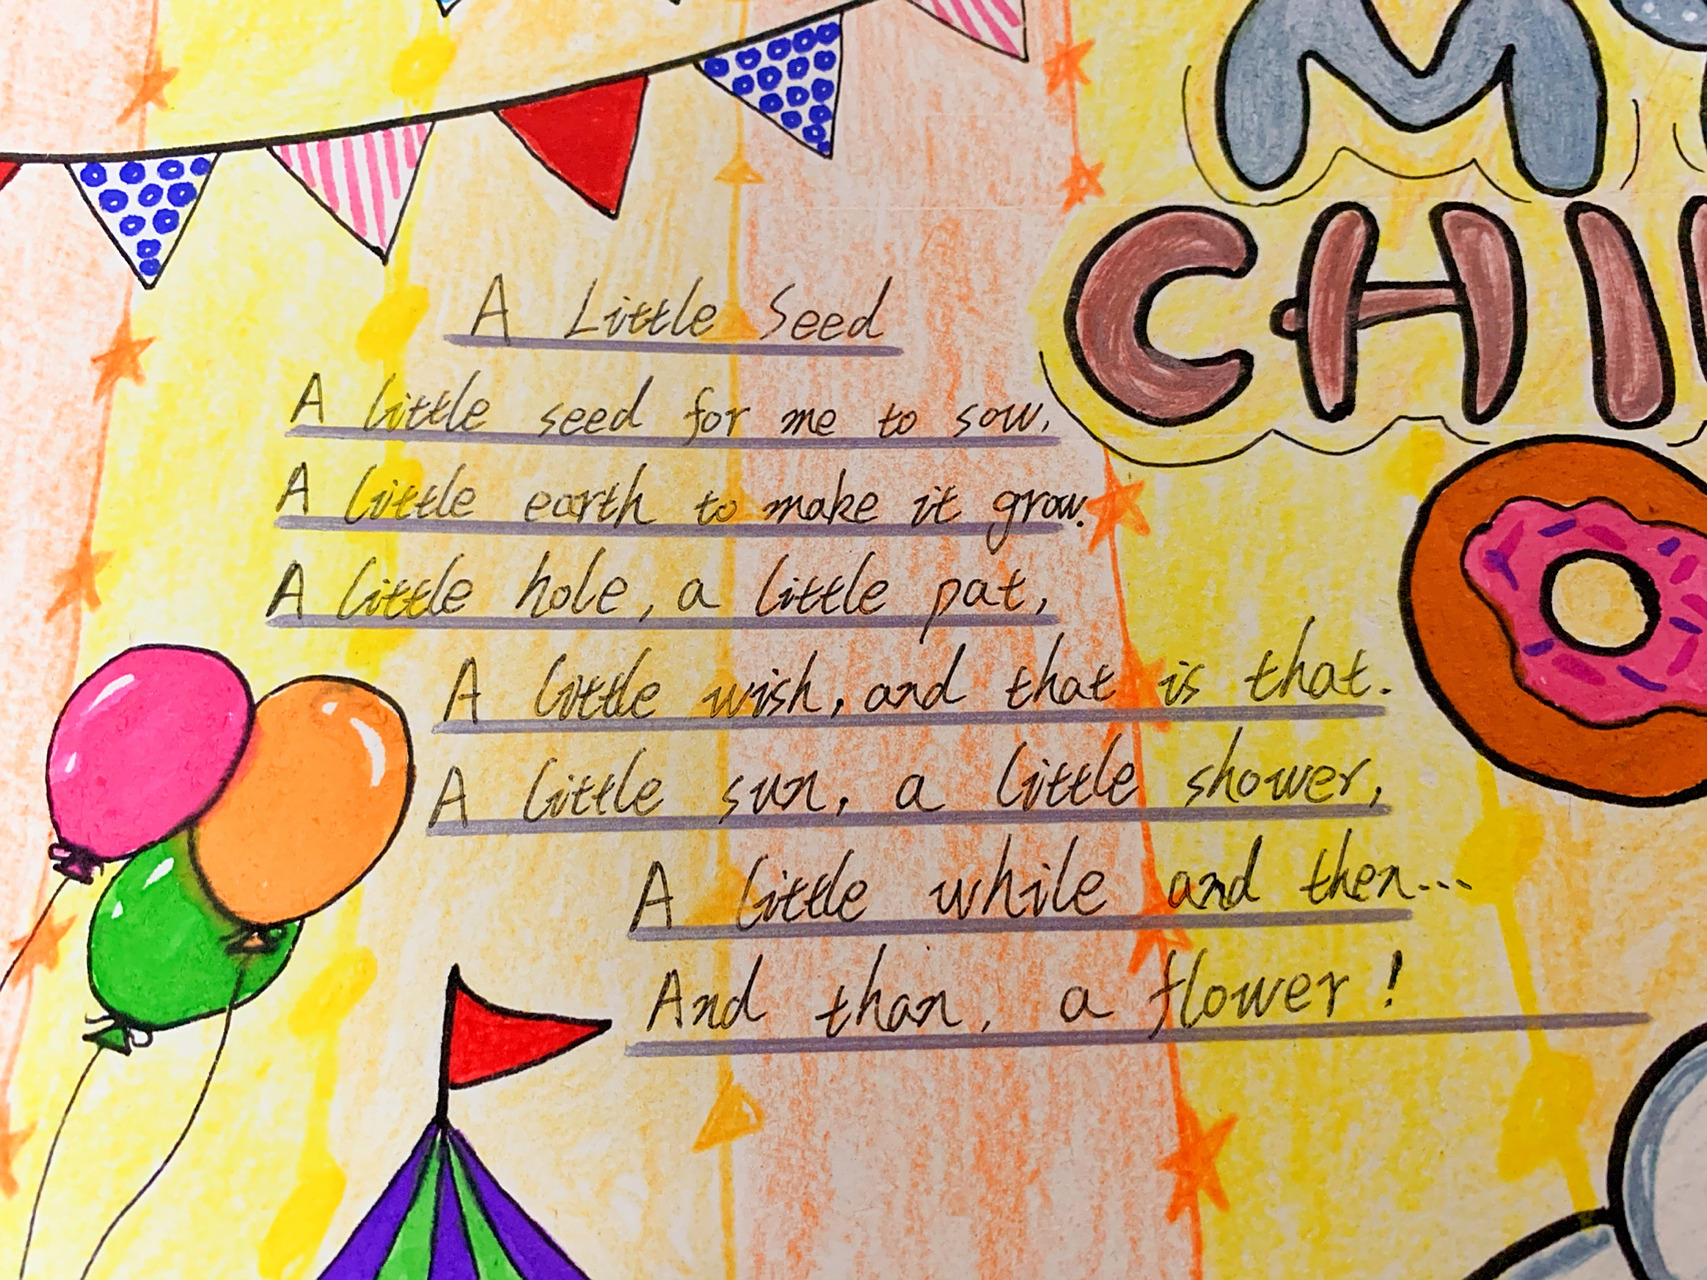 A Little Seed
A little seed for me to sow.
A little earth to make it grow.
A little hole, a little pat,
A little wish, and that is that.
A little sun, a little shower,
A little while and then...
And than, a flower!